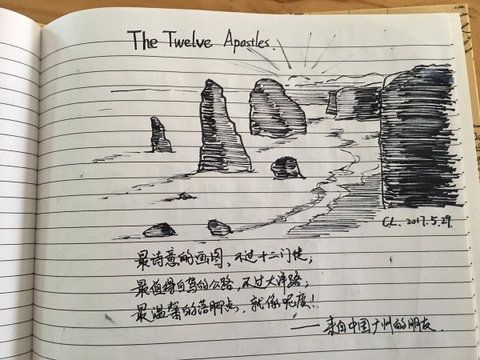 The Twelve Apostles.
C.L. 2017.5.29.
最诗意的画图，不过十二门徒；
最值得自驾的公路，不过大洋路；
最温馨的落脚点，就係呢度！
——来自中国广州的朋友